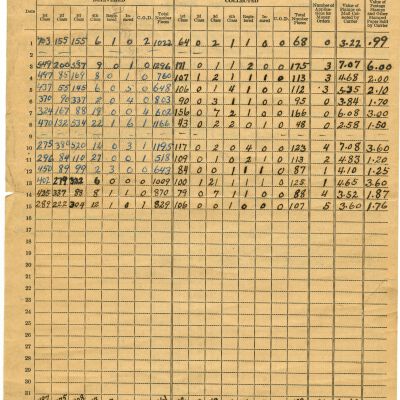 DELIVERED COLLECTED
Date 1st Class 2d Class 3d Class 4th Class Registered Insured C.O.D. Total Number Pieces 1st Class 2d Class 3d Class 4th Class Registered Insured C.O.D. Total Number Pieces Number of Applications for Money Orders Value of Postage on Mail Collected by Carrier Value of Postage Stamps and Stamped Paper sold by Carrier
1 703 155 155 6 1 0 2 1022 64 0 2 1 1 0 0 68 0 3.22 .99
2
3 549 200 537 9 0 1 0 1296 171 0 1 1 2 0 0 175 3 7.07 6.00
4 497 85 169 8 0 1 0 760 107 1 2 1 1 1 0 113 3 4.68 2.00
5 437 55 145 6 0 648 106 0 1 4 1 0 0 112 3 2.10
6 370 90 337 2 0 4 0 803 90 0 3 1 1 0 0 95 0 3.84 1.70
7 324 167 88 18 0 0 4 602 156 0 7 2 1 0 0 166 0 6.08 3.00
8 470 132 534 22 1 6 1 1166 43 0 2 2 0 1 0 48 0 2.58 1.50
9
10 275 520 0 3 1 1195 117 0 2 0 4 0 0 123 4 7.08 3.60
11 296 84 110 27 0 0 1 518 109 0 1 0 2 1 0 113 2 4.83 1.20
12 450 89 99 2 3 0 0 643 84 0 0 1 1 1 0 87 1 4.10 1.25
13 402 279 322 6 0 0 0 1009 100 1 1 1 1 0 125 1 4.65 3.60
14 435 337 88 8 1 1 0 870 79 0 7 1 1 0 0 88 4 3.52 1.87
15 289 222 304 12 1 0 1 829 106 0 0 1 0 0 0 107 5 3.60 1.76
16
17
18
19
20
21
22
23
24
25
26
27
28
29
30
31